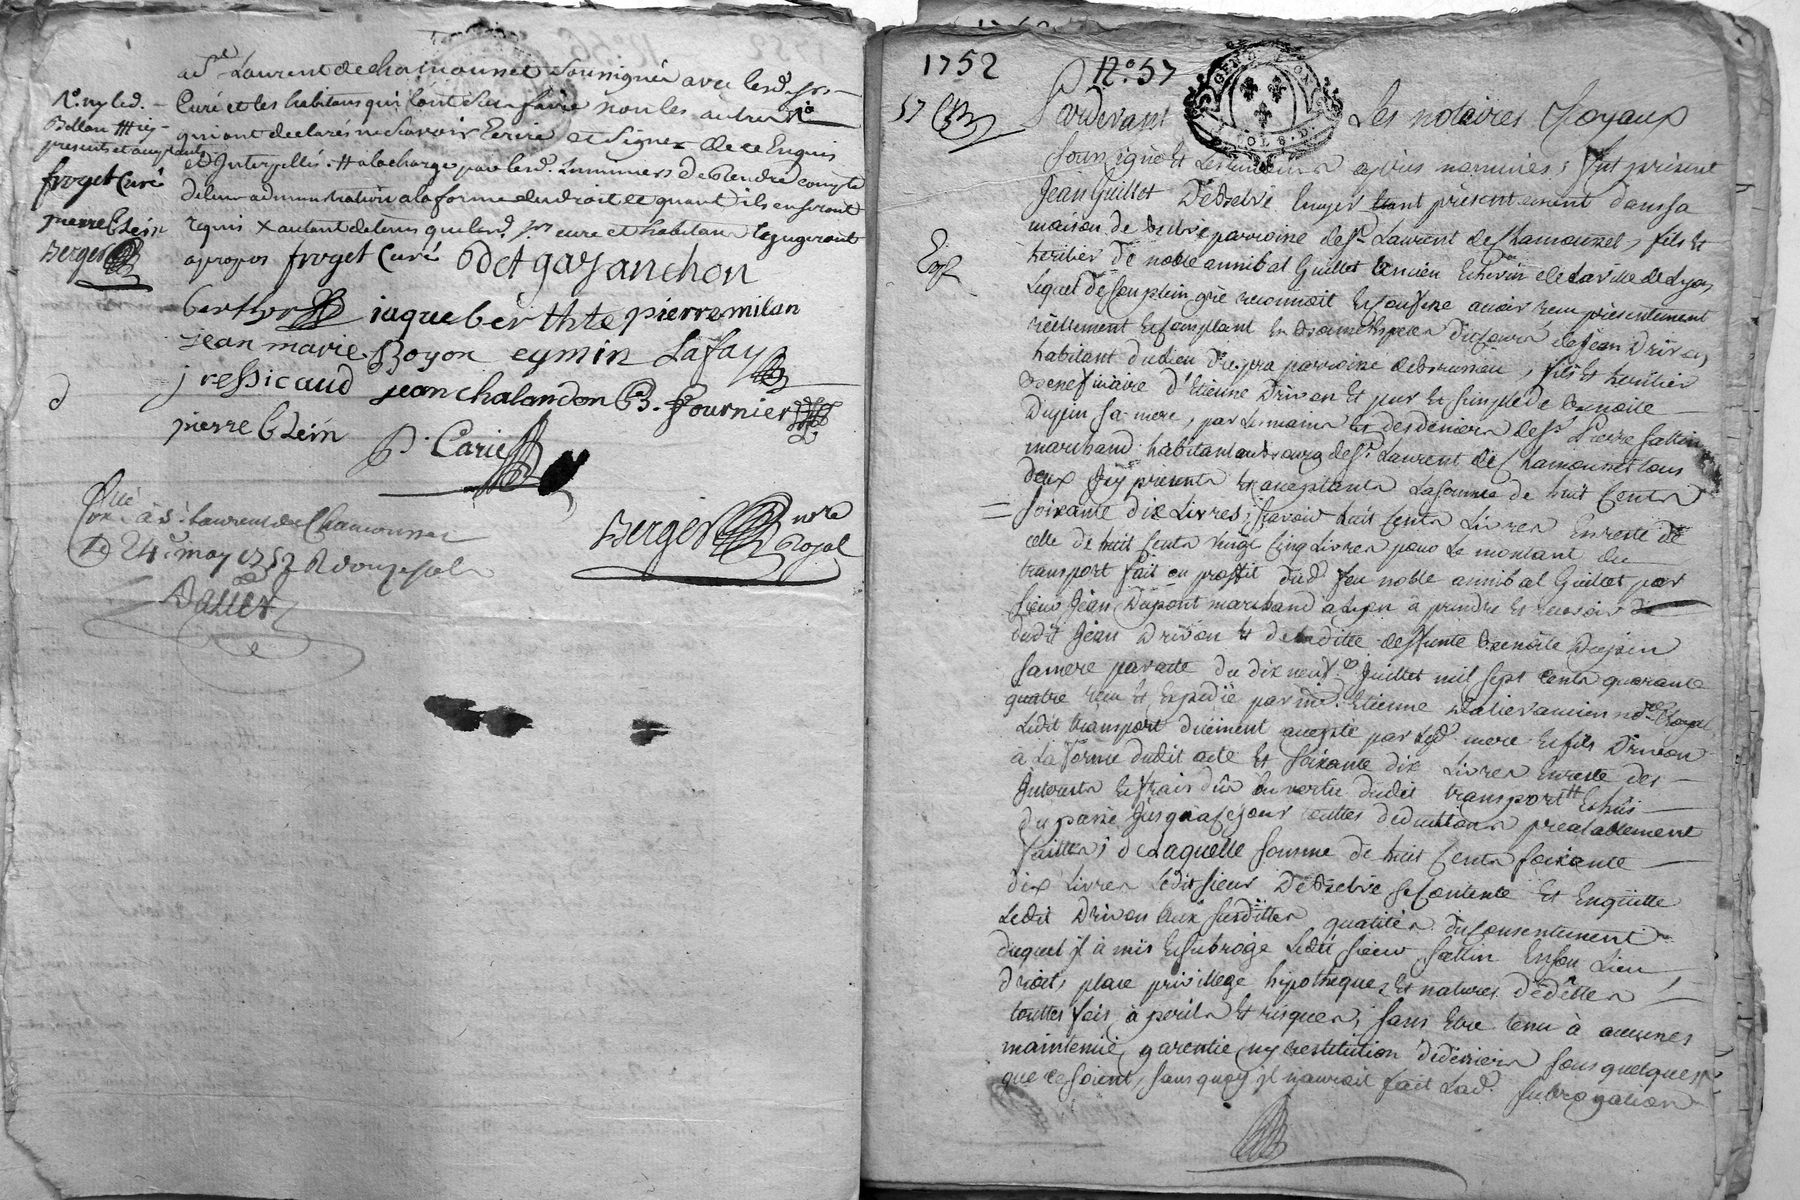 a st Laurent de chamousset soussignés avec lesd. srs
Curé et les habitans qui l'ont sceu faire non les autres
qui ont declarés ne scavoir Ecrire et signer de ce Enquis
et Interpellés. # a la charge par lesd. Luminiers de Rendre compte
de leur administration a la forme du droit et quant ils en seront
requis x autant de tems que lesd. srs curé et habitans le jugeront
apropos froget Curé Odet gayanchon
berthet jaque berthete pierre milan
jean marie Boyon eymin Lafay
j ressicaud jean chalandon B. fournier
pierre blein
P. Carie
Berger nore
Royal
present et acceptants
froget Curé
pierre blein
Berger
Con. à St. Laurent de Chamousset
le 24e may 1752 R douze sols
1752 N°. 57
57
Pardevant Les notaires Royaux
soussigné Et Les temoins apprès nommés; fut présent
Jean Guillet Debelvé Ecuyer étant présentement dans sa
maison de belvé parroisse de St. Laurent de Chamousset, fils Et
heritier de noble annibal Guillet Ancien Echevin de la ville de Lyon
Lequel de son plein gré reconnoit Et confesse avoir reçu présentement
réellement Et comptant En bonnes Especes du cours de Jean Drivon
habitant du lieu de parroisse de brussieu, fils Et heritier
beneficiaire d'Etienne Drivon Et pur Et simple de benoite
Dupin sa mere, par Les mains Et des deniers de Sr. Pierre fattin
marchand habitant au bourg de St. Laurent de Chamousset tous
deux Icy présents Et acceptants La somme de huit Cents
soixante dix Livres; scavoir huit Cents Livres En reste de
celle de huit Cents vingt Cinq Livres pour Le montant du
transport fait au proffit dud. feu noble annibal Guillet par
sieur Jean Dupont marchand a Lyon à prendre Et recevoir de
dudit Jean Drivon Et de laditte deffunte benoite Dupin
sa mere par acte du dix neuf Juillet mil sept Cents quarante
quatre reçu Et Expedié par me. Etienne ancien nore Royal
Ledit transport duëment accepté par Lesd. mere Et fils Drivon
à La forme dudit acte Et soixante dix Livres En reste des
Interests Et frais dûs En vertu dudit transport Echus
du passé Jusqu'a Ce Jour touttes deductions préalablement
faittes; de Laquelle somme de huit Cents soixante
dix Livres Ledit sieur Debelvé se Contente Et En quitte
Ledit Drivon Aux susdittes qualités. Du Consentement
duquel Il à mis Et subrogé Ledit sieur fattin En son Lieu
droit, place privillege hipotheques Et natures de dettes
touttes fois à perils Et risques, sans Etre tenu à aucunes
maintenüe, garentie ny Restitution de deniers sous quelques
que ce soient, sans quoy Il n'auroit fait Lad. subrogation